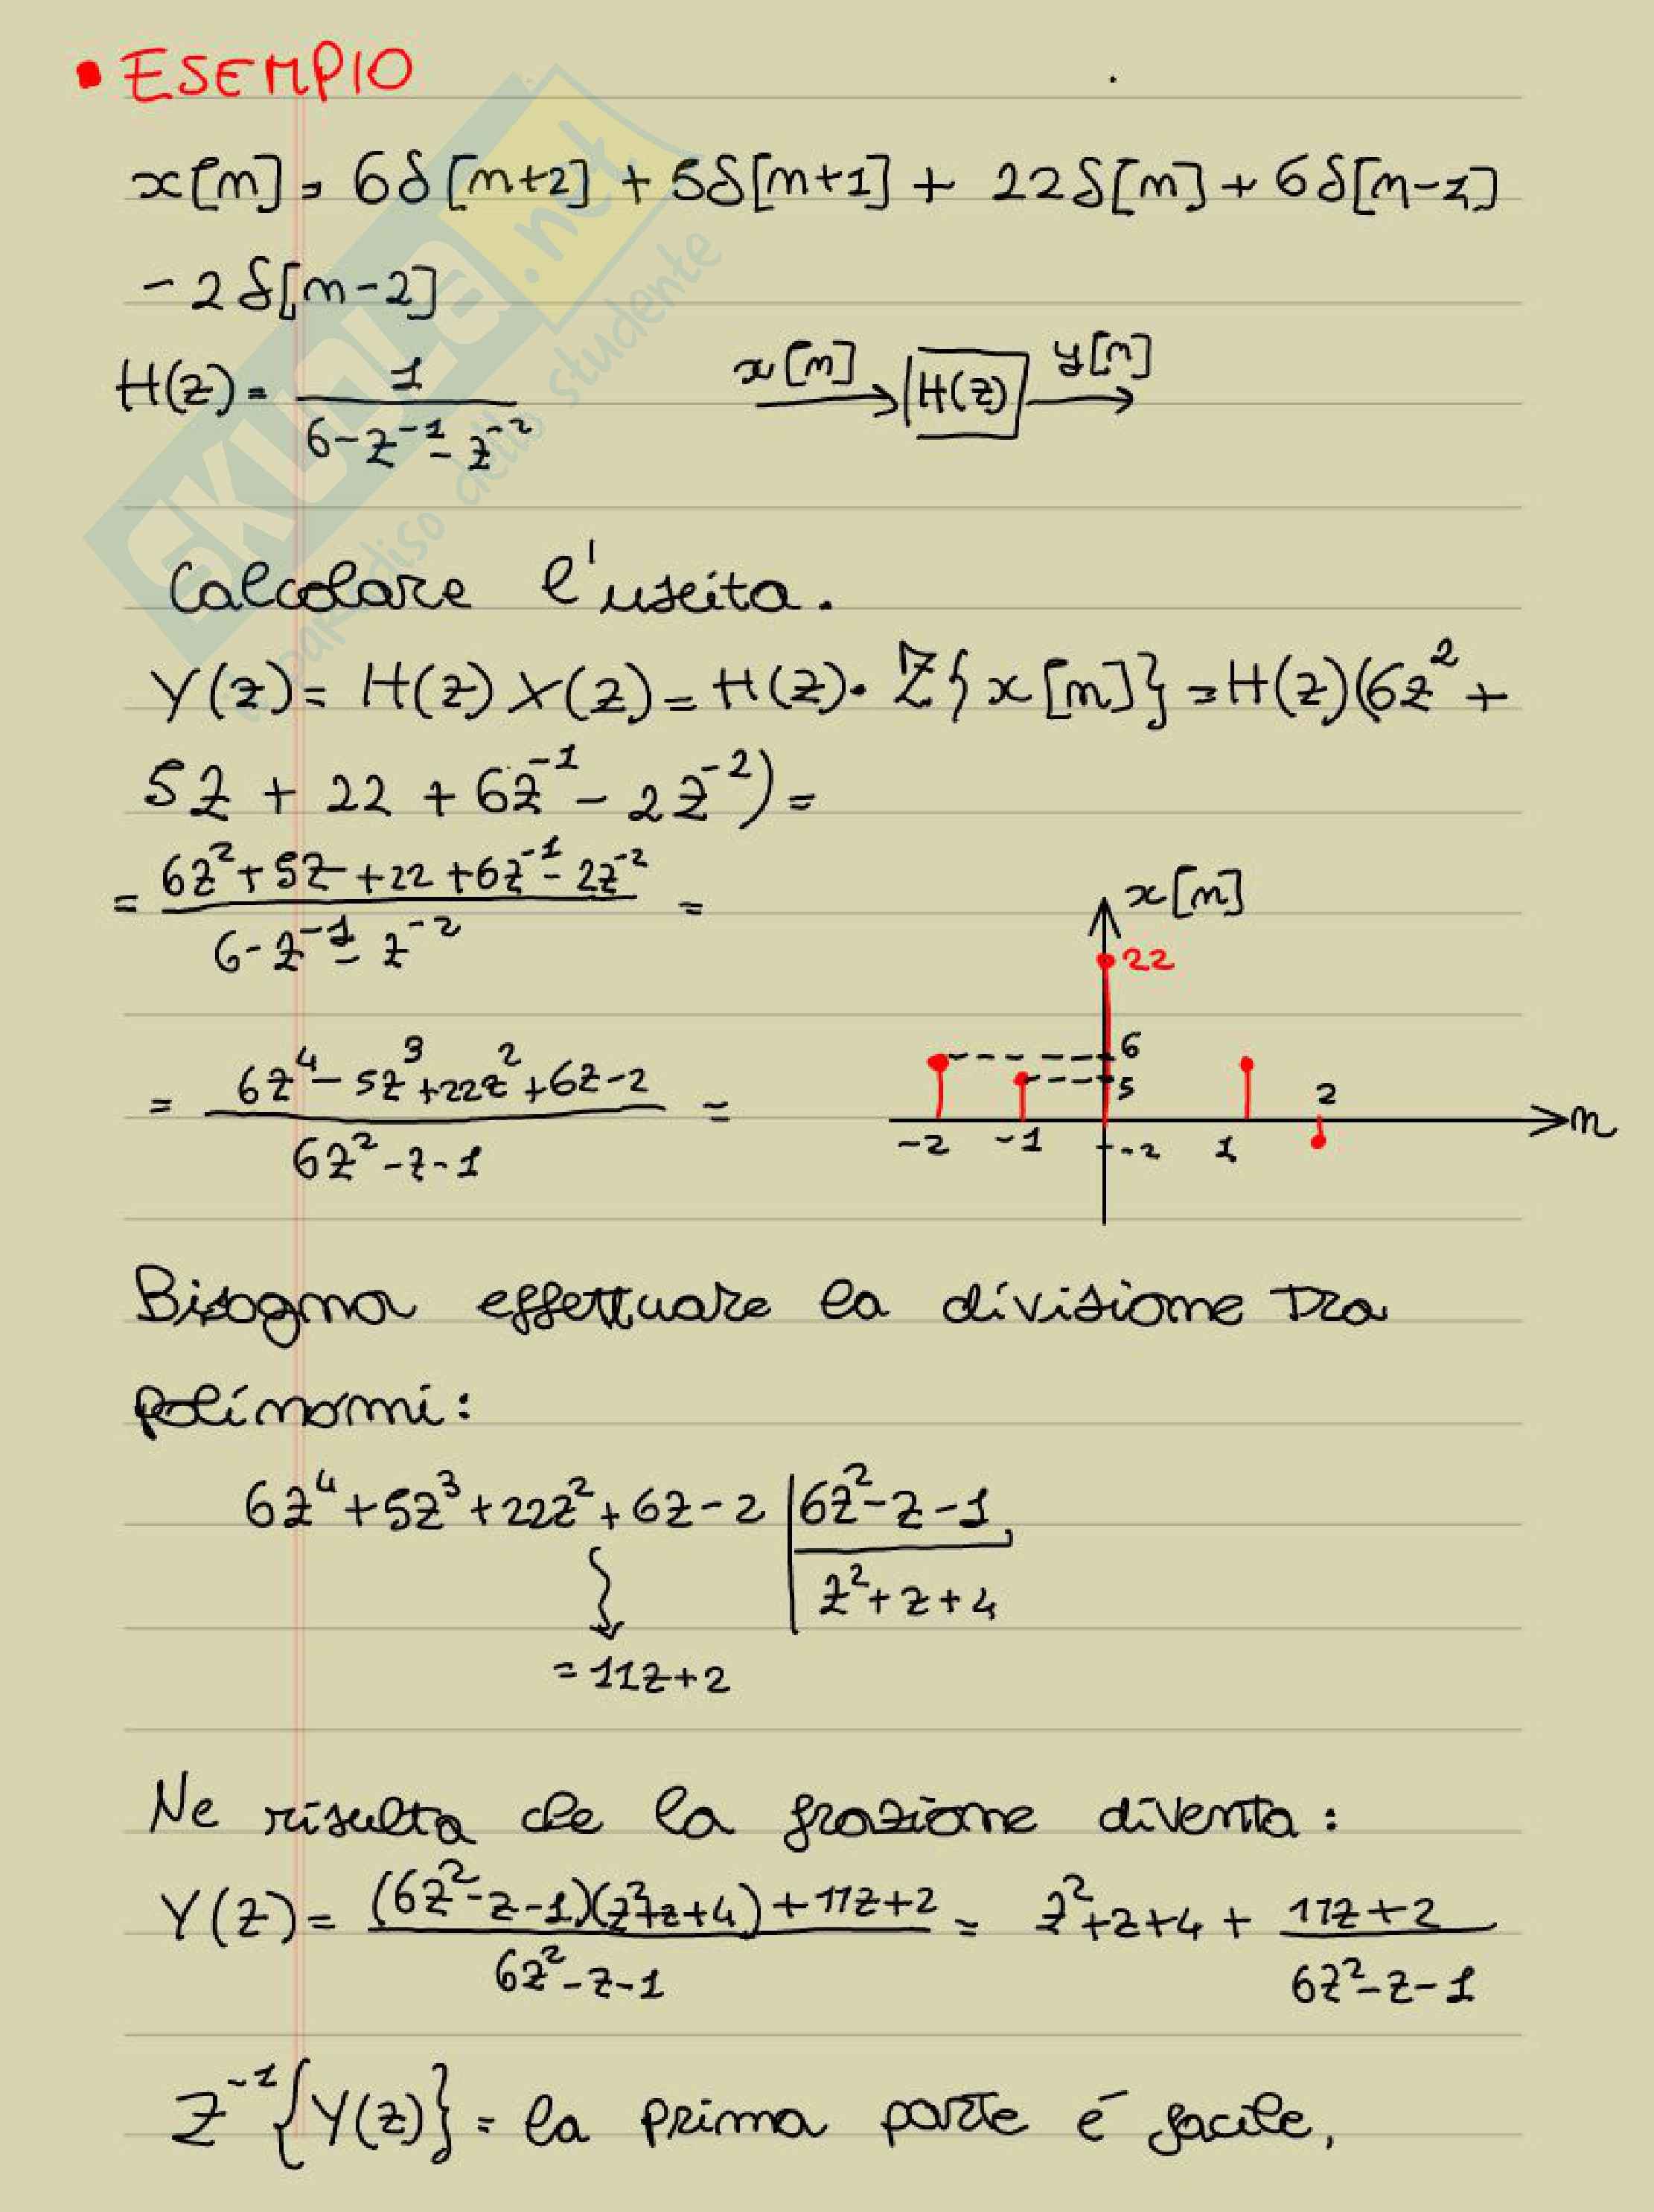 • ESEMPIO
x[n] = 6δ[n+2] + 5δ[n+1] + 22δ[n] + 6δ[n-1]
- 2δ[n-2]
H(z) = 1 / (6 - z⁻¹ - z⁻²)
x[n] → H(z) → y[n]
SKUOLA.net
paradiso dello studente
Calcolare l'uscita.
Y(z) = H(z) X(z) = H(z) · Z{x[n]} = H(z)(6z² +
5z + 22 + 6z⁻¹ - 2z⁻²) =
= (6z² + 5z + 22 + 6z⁻¹ - 2z⁻²) / (6 - z⁻¹ - z⁻²) =
= (6z⁴ - 5z³ + 22z² + 6z - 2) / (6z² - z - 1) =
x[n]
22
6
5
2
-2 -1 -2 1
n
Bisogna effettuare la divisione tra
polinomi:
6z⁴ + 5z³ + 22z² + 6z - 2 | 6z² - z - 1
z² + z + 4
= 11z + 2
Ne risulta che la frazione diventa:
Y(z) = ((6z² - z - 1)(z² + z + 4) + 11z + 2) / (6z² - z - 1) = z² + z + 4 + (11z + 2) / (6z² - z - 1)
Z⁻¹{Y(z)} = la prima parte é facile,